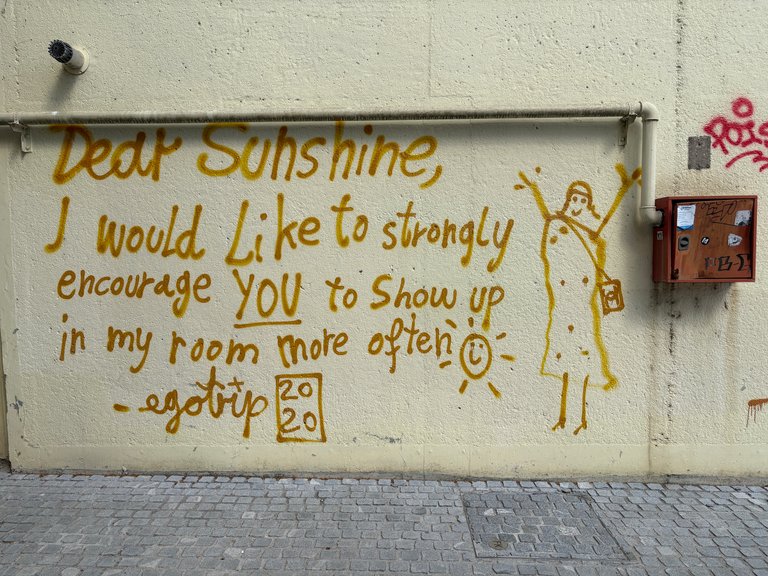 Dear Sunshine,
I would Like to strongly
encourage YOU to show up
in my room more often
- egotrip 20
20